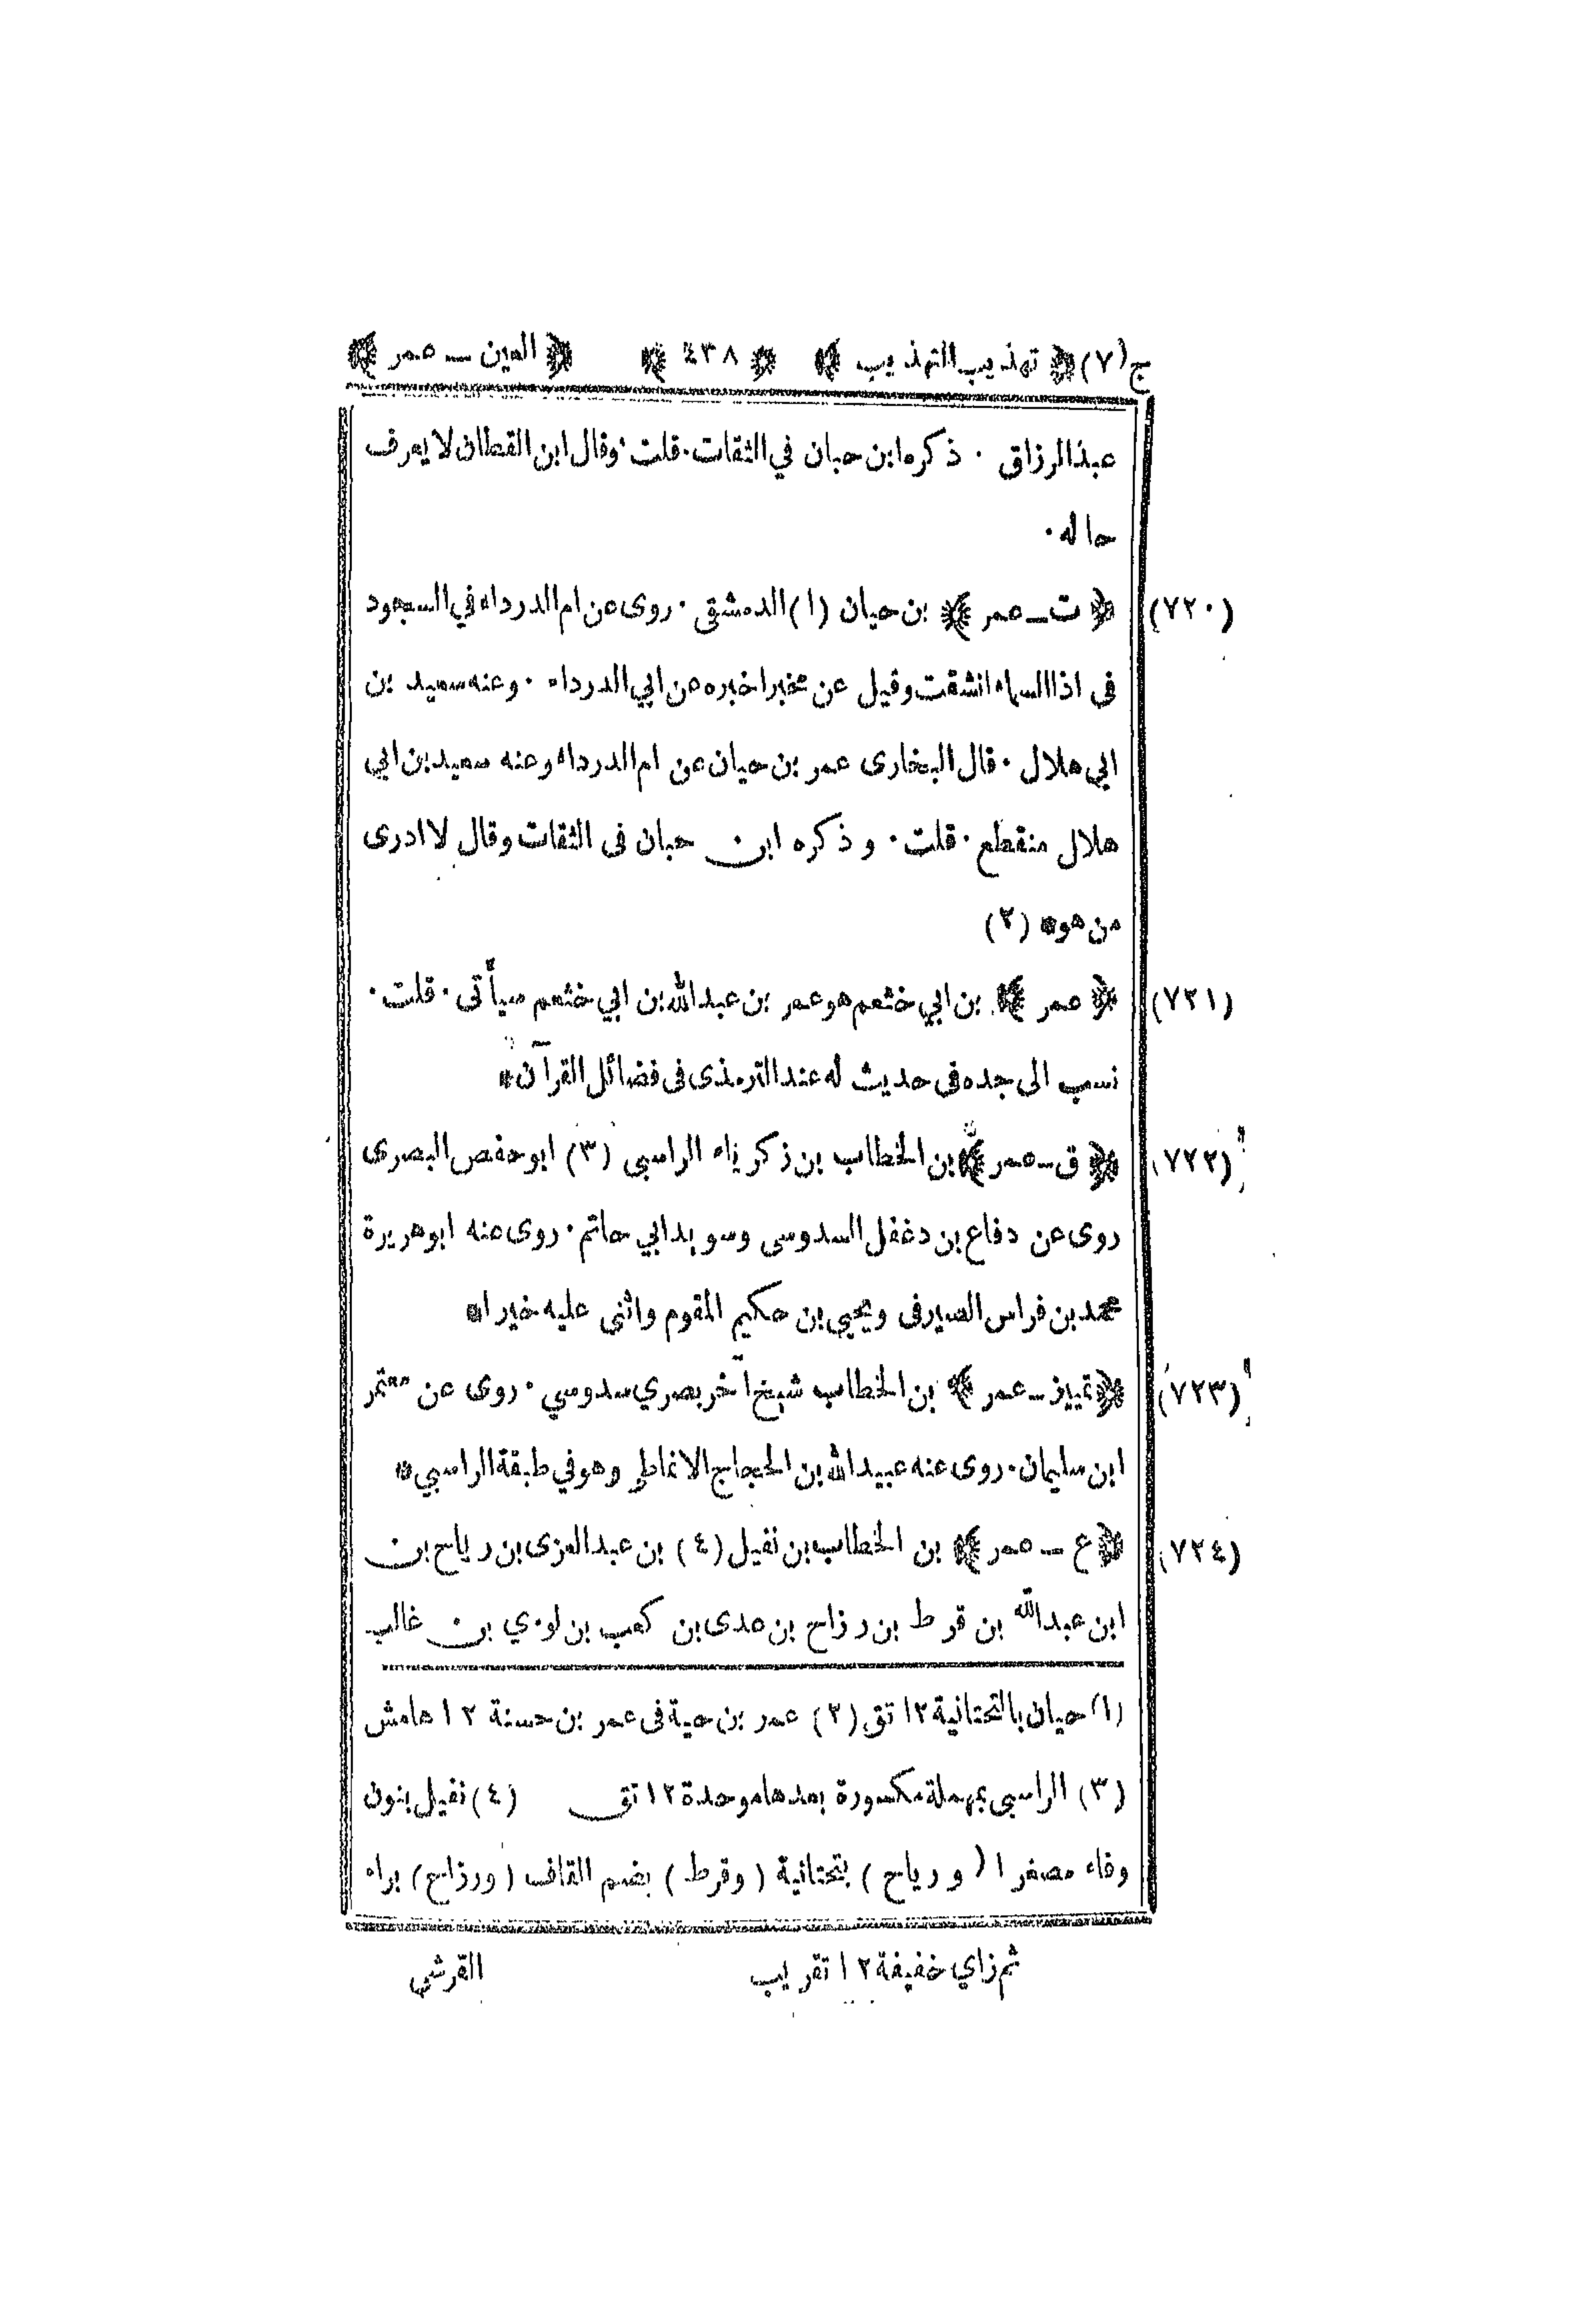 ج (٧) ﴿ تهذيب التهذيب ﴾ ﴿ ٤٣٨ ﴾ ﴿ العين ــ عمر ﴾
عبدالرزاق ٠ ذكره ابن حبان في الثقات ٠ قلت ٠ وقال ابن القطان لا يعرف
حاله ٠
(٧٢٠) ﴿ ت ــ عمر ﴾ بن حيان (١) الدمشقى ٠ روى عن ام الدرداء في السجود
فى اذا السماء انشقت وقيل عن مخبر اخبره عن ابي الدرداء ٠ وعنه سعيد بن
ابي هلال ٠ قال البخارى عمر بن حيان عن ام الدرداء وعنه سعيد بن ابي
هلال منقطع ٠ قلت ٠ وذكره ابن حبان فى الثقات وقال لا ادرى
من هو* (٢)
(٧٢١) ﴿ عمر ﴾ بن ابي خثعم هو عمر بن عبدالله بن ابي خثعم سيأتى ٠ قلت ٠
نسب الى جده في حديث له عند الترمذى فى فضائل القرآن*
(٧٢٢) ﴿ ق ــ عمر ﴾ بن الخطاب بن زكرياء الراسبى (٣) ابو حفص البصرى
روى عن دفاع بن دغفل السدوسى وسويد ابي حاتم ٠ روى عنه ابو هريرة
محمد بن فراس الصيرفى ويحيى بن حكيم المقوم واثنى عليه خيرا*
(٧٢٣) ﴿ تمييز ــ عمر ﴾ بن الخطاب شيخ آخر بصري سدوسي ٠ روى عن معتمر
ابن سليمان ٠ روى عنه عبيدالله بن الحجاج الانماطي وهو في طبقة الراسبي*
(٧٢٤) ﴿ ع ــ عمر ﴾ بن الخطاب بن نفيل (٤) بن عبد العزى بن رياح بن
ابن عبدالله بن قرط بن رزاح بن عدى بن كعب بن لوءي بن غالب
(١) حيان بالتحتانية ١٢ تق (٢) عمر بن حية فى عمر بن حسنة ١٢ هامش
(٣) الراسبى بمهملة مكسورة بعدها موحدة ١٢ تق (٤) نفيل بنون
وفاء مصغرا (ورياح) بتحتانية (وقرط) بضم القاف (ورزاح) براء
ثم زاي خفيفة ١٢ تقريب القرشي